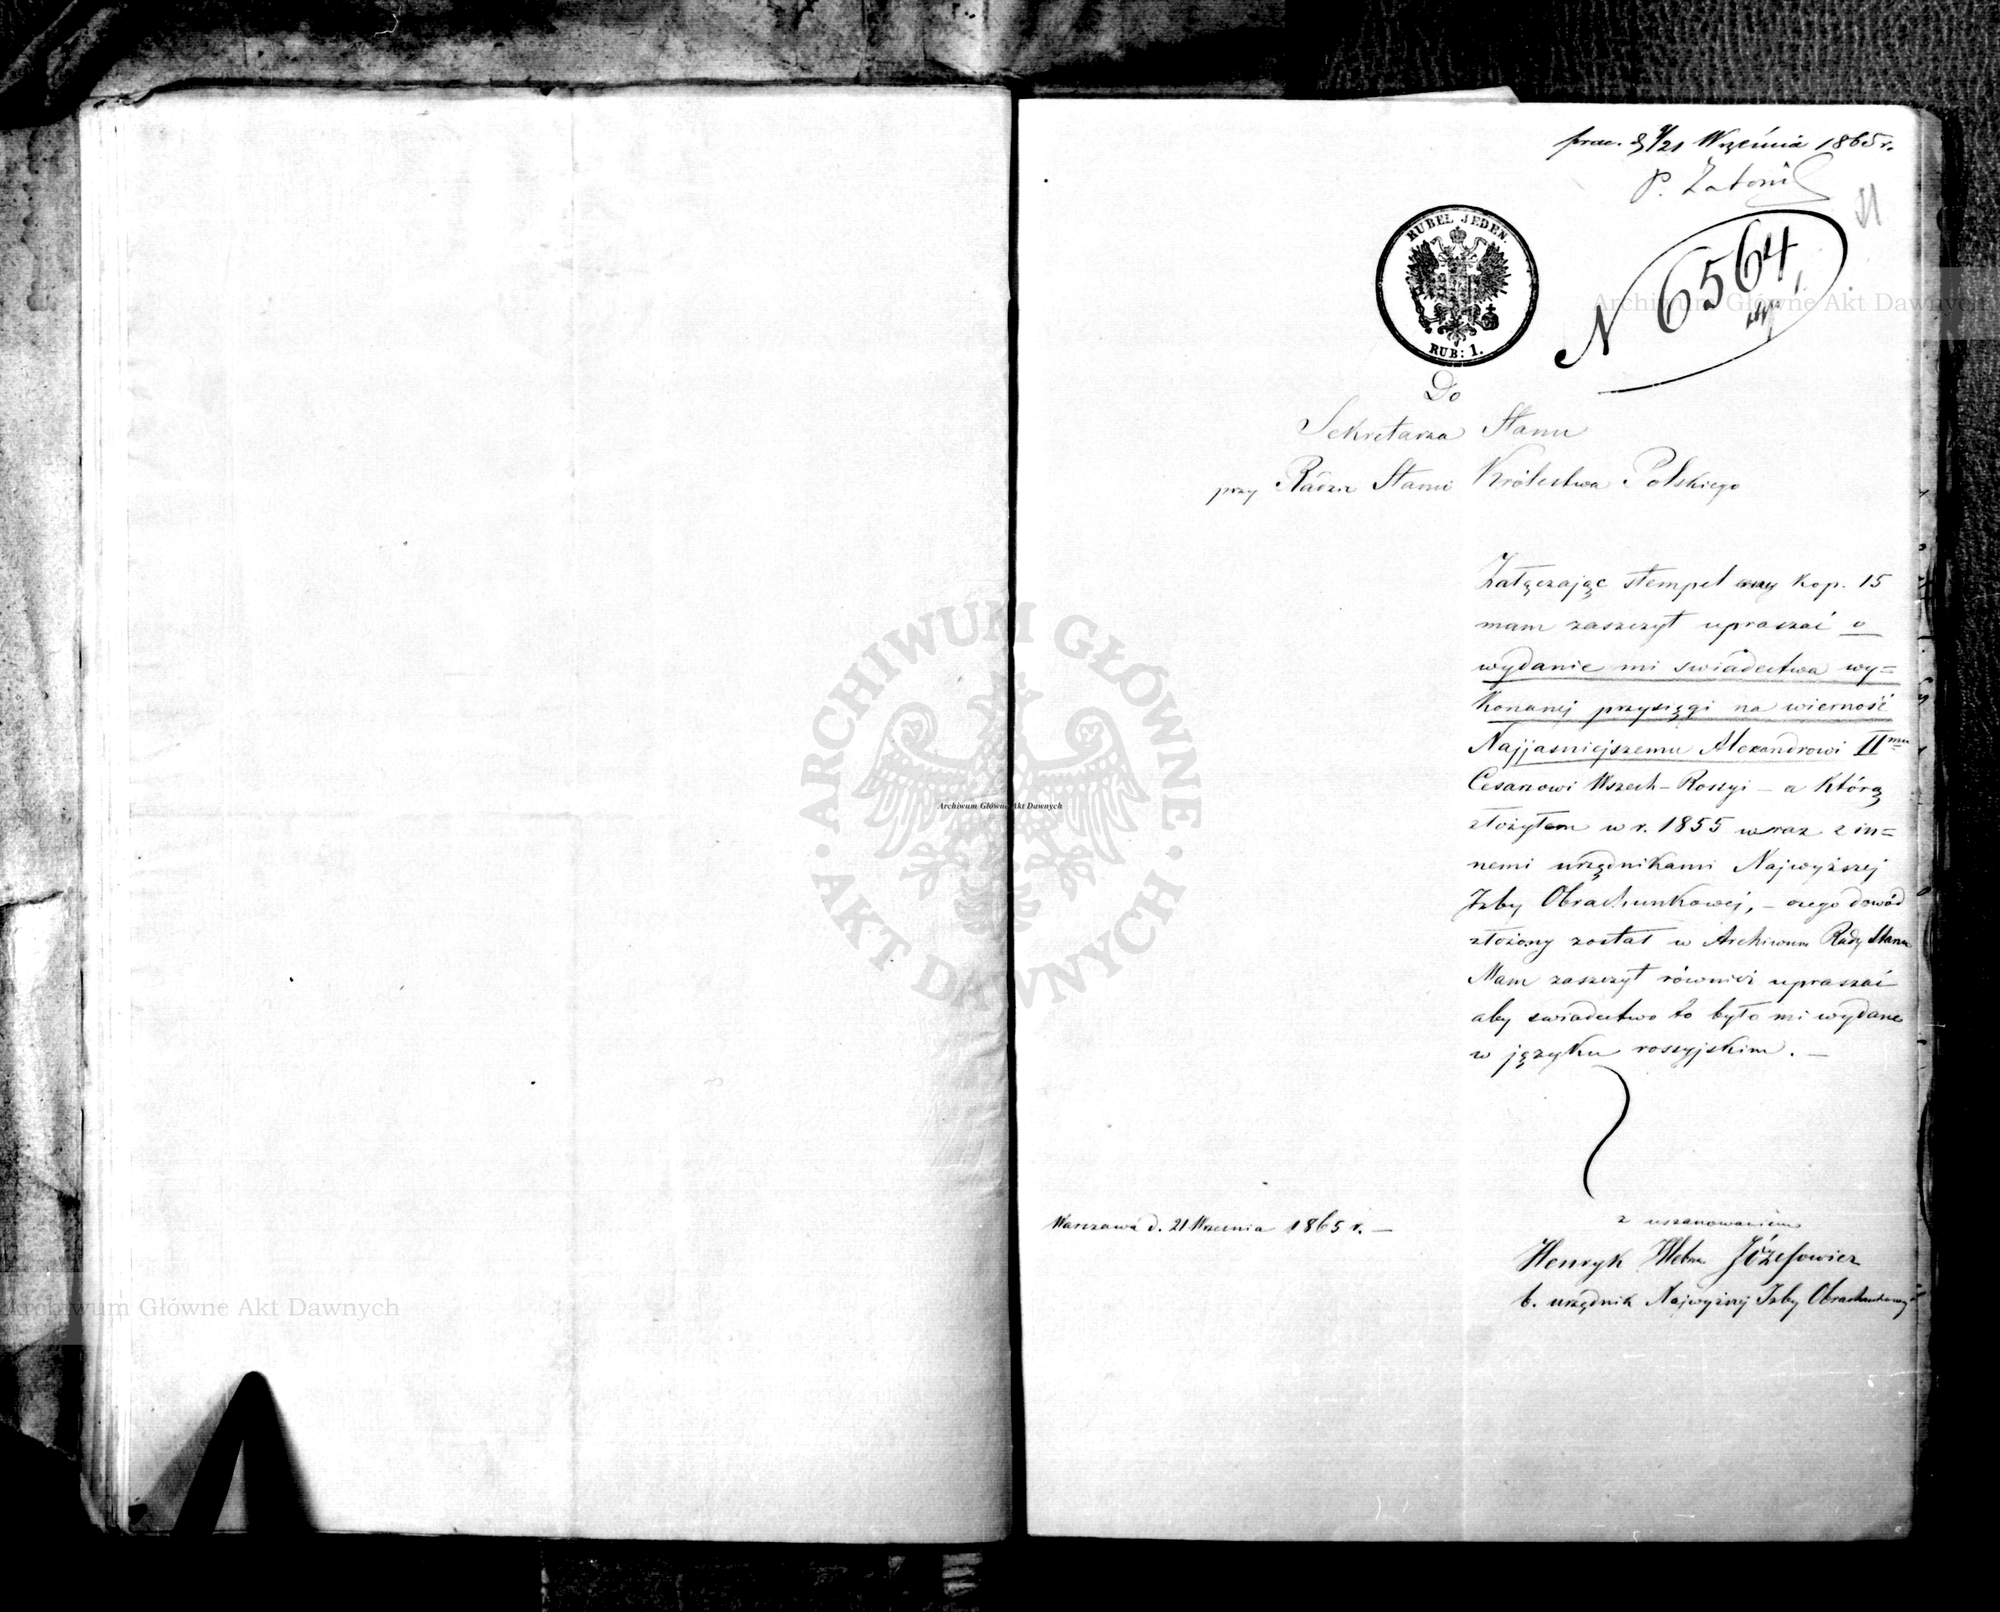 prae. d. 9/21 Września 1865 r.
P. Zatoni
51
RUBEL JEDEN.
RUB: 1.
N 6564
Do
Sekretarza Stanu
przy Radzie Stanu Królestwa Polskiego
Załączając stempel ceny kop. 15
mam zaszczyt upraszać o
wydanie mi swiadectwa wy=
konanej przysięgi na wierność
Najjasniejszemu Alexandrowi IImu
Cesarzowi Wszech-Rossyi – a którą
złożyłem w r. 1855 wraz z in=
nemi urzędnikami Najwyższej
Izby Obrachunkowej, – czego dowód
złożony został w Archiwum Rady Stanu
Mam zaszczyt również upraszać
aby swiadectwo to było mi wydane
w języku rossyjskim. –
Warszawa d. 21 Wrzesnia 1865 r. –
z uszanowaniem
Henryk Józefowicz
b. urzędnik Najwyższej Izby Obrachunkowej
ARCHIWUM GŁÓWNE AKT DAWNYCH
Archiwum Główne Akt Dawnych
Archiwum Główne Akt Dawnych
Archiwum Główne Akt Dawnych